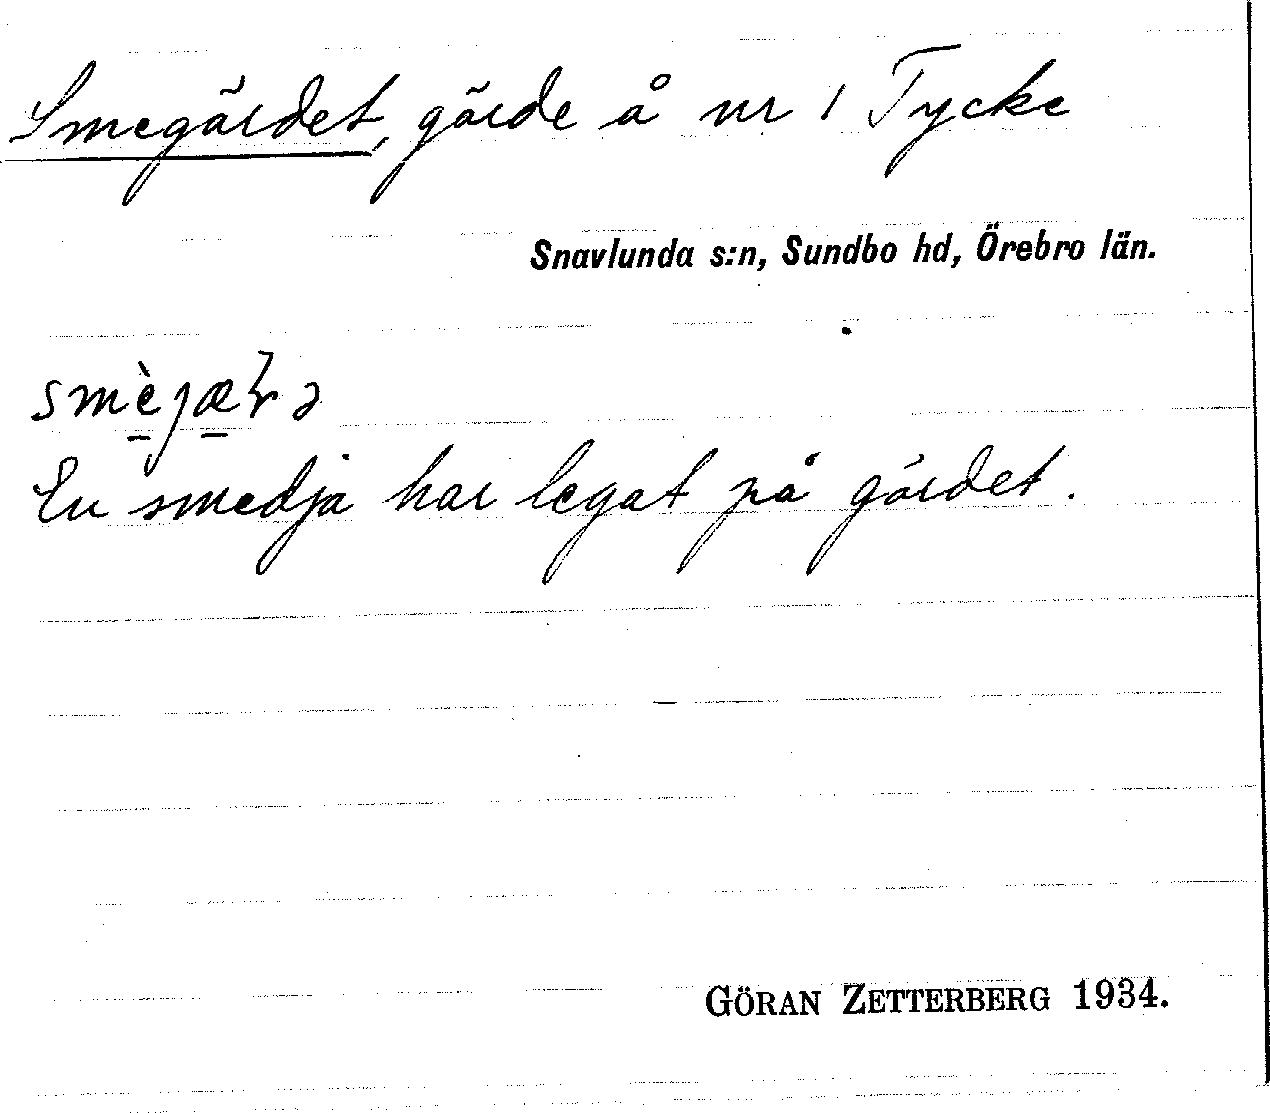 Smegärdet, gärde å nr 1 Tycke
Snavlunda s:n, Sundbo hd, Örebro län.
En smedja har legat på gärdet.
GÖRAN ZETTERBERG 1934.